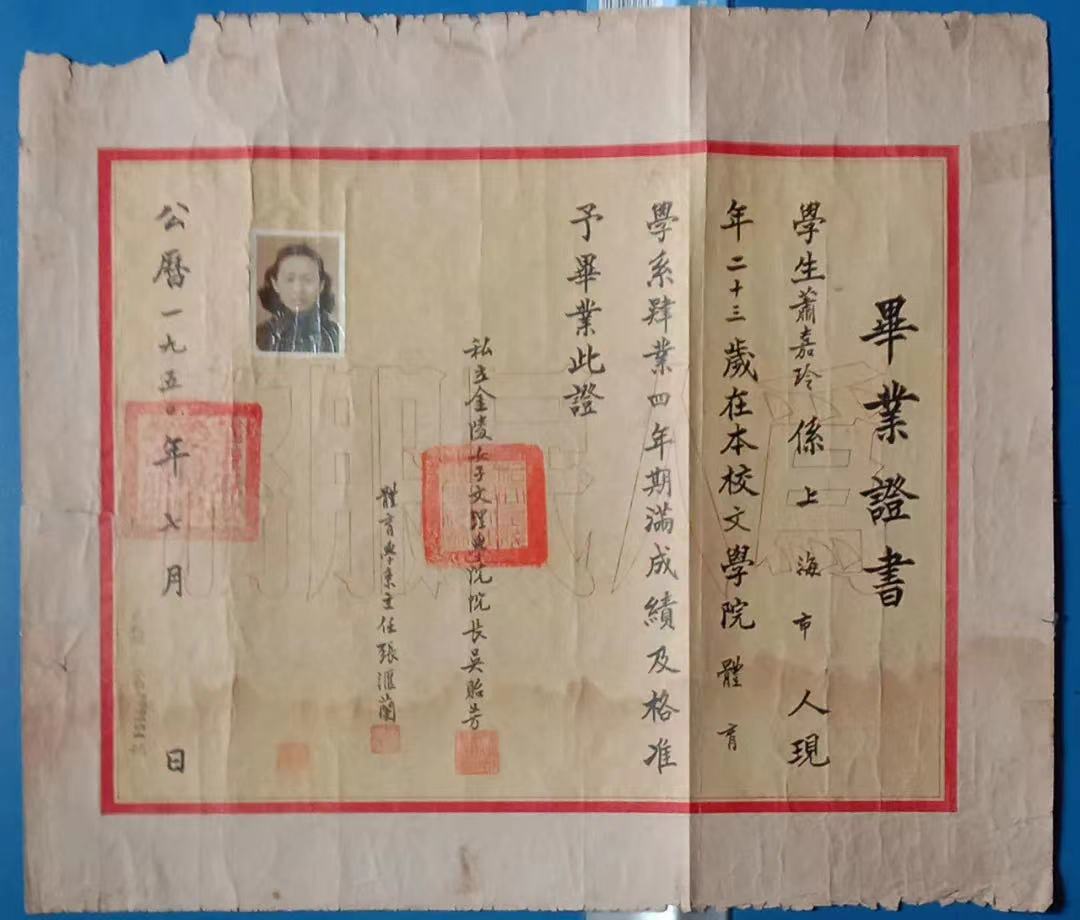 畢業證書
學生蕭嘉玲係上海市人現
年二十三歲在本校文學院體育
學系肄業四年期滿成績及格准
予畢業此證
私立金陵女子文理學院院長吳貽芳
體育學系主任張滙蘭
公曆一九五〇年七月 日